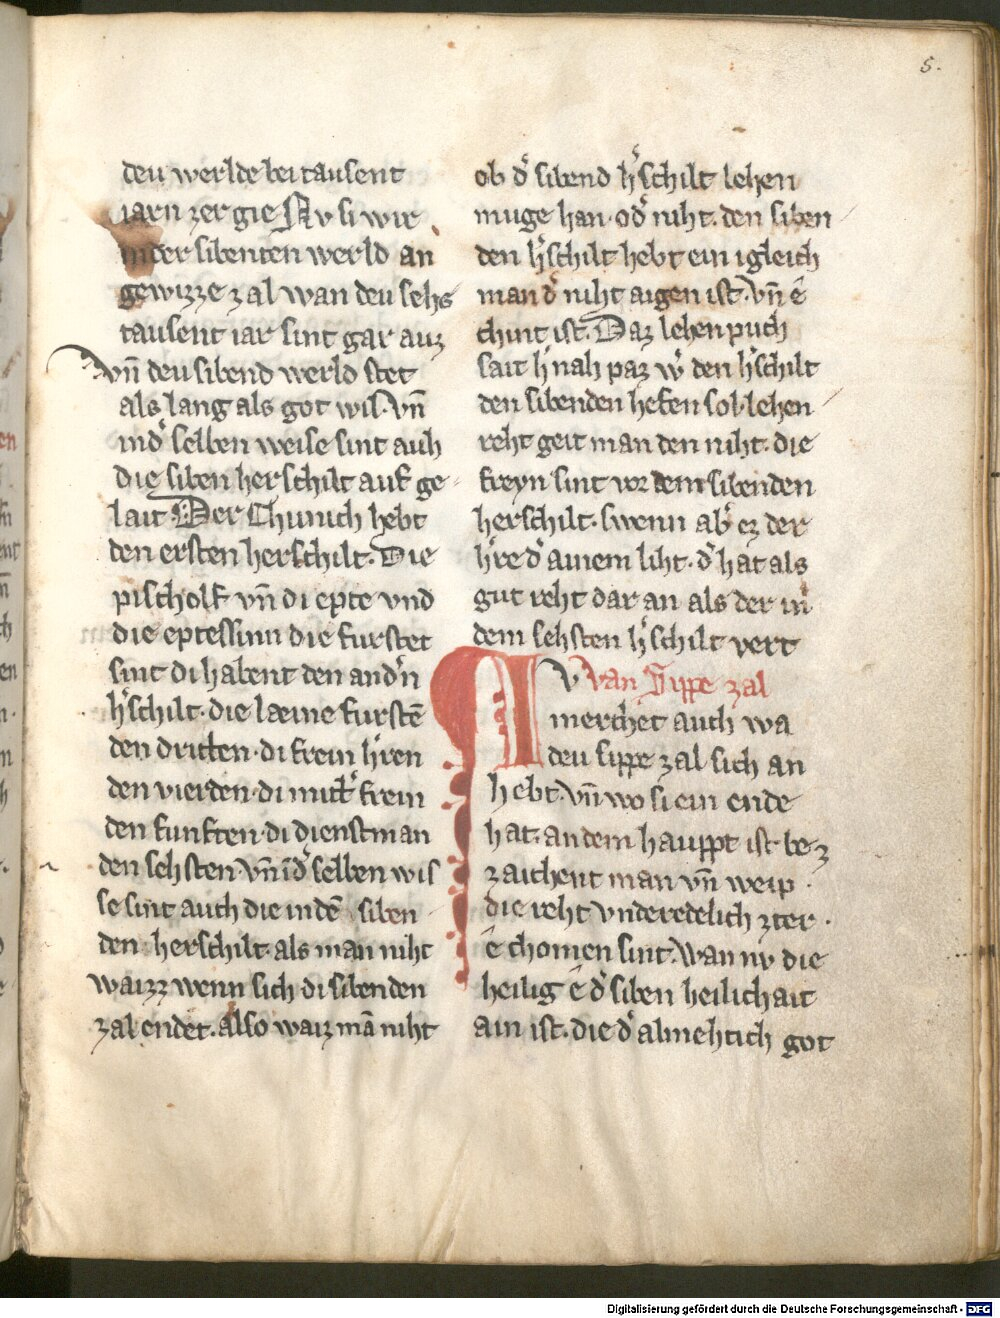 5.
deu werlde bei tausent
iarn zer gie Nv si wir
in der sibenten werld an
gewizze zal wan deu sehs
tausent iar sint gar auz
vn̄ deu sibend werld stet
als lang als got wil. vn̄
in d͛ selben weise sint auh
die siben herschilt auf ge-
lait. Der Chunich hebt
den ersten herschilt. Die
pischolf vn̄ di epte vnd
die eptessinn die furstet
sint di habent den and͛n
h͛schilt. die læine furstē
den dritten. di frein h͛ren
den vierden. di mitt͛ frein
den funften. di dienstman
den sehsten. vn̄ ī d͛ selben wis
se sint auch die in dē siben
den herschilt. als man niht
waizz wenn sich di sibenden
zal endet. also waiz mā niht
ob d͛ sibend h͛schilt lehen
muge han. od͛ niht. den siben
den h͛schilt hebt ein igleich
man d͛ niht aigen ist. vn̄ ê
chint ist. Daz lehen puch
sait h͛ nah paz w͛ den h͛schilt
den sibenden hefen sol. lehen
reht geit man den niht. die
freyn sint vor dem sibenden
herschilt. swenn ab͛ ez der
h͛re d͛ ainem liht. d͛ hat als
gut reht dar an als der in
dem sehsten h͛schilt vert
Nv van Sippe zal
merchet auch wa
deu sippe zal sich an
hebt. vn̄ wo si ein ende
hat. an dem hauppt ist be z
zaichent man vn̄ weip.
die reht vnderedelich zter.
ê chomen sint. wan nv die
heilig ê d͛ siben heilichait
ain ist. die d͛ almehtich got
Digitalisierung gefördert durch die Deutsche Forschungsgemeinschaft - DFG